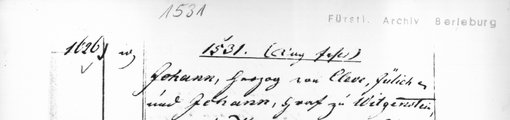 1531
Fürstl. Archiv Berleburg
1626
1531.
Johann, Herzog von Cleve, Jülich
und Johann, Graf zu Witgenstein,